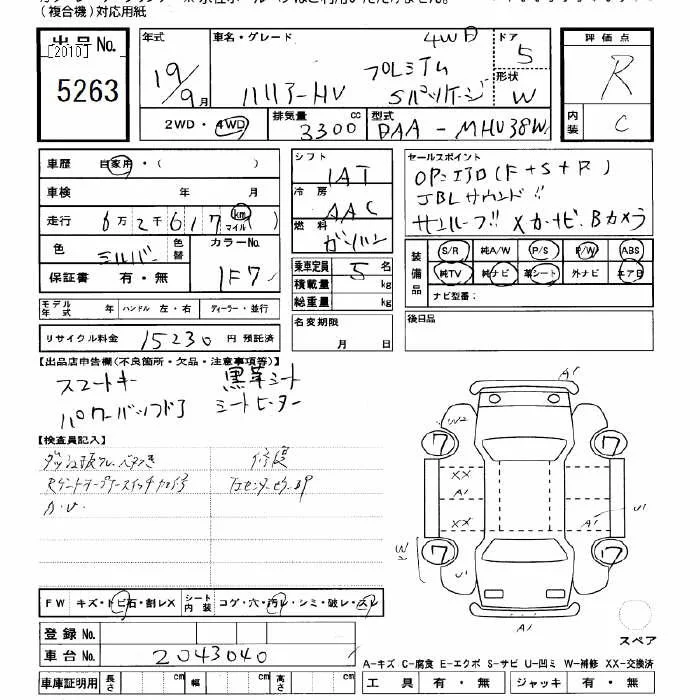 (複合機)対応用紙
出品No.
[2010]
5263
年式
19/9月
車名・グレード
ハリアーHV
プレミアム
Sパッケージ
4WD
ドア
5
形状
W
2WD・4WD
排気量
3300 cc
型式
DAA - MHU38W
評価点
R
内装
C
車歴 自家用・( )
車検 年 月
走行 6万2千617 km マイル
色 シルバー 色替 カラーNo. 1F7
保証書 有・無
モデル年式 年 ハンドル 左・右 ディーラー・並行
リサイクル料金 15230 円 預託済
シフト
IAT
冷房
AAC
燃料
ガソリン
乗車定員 5 名
積載量 kg
総重量 kg
名変期限
月 日
セールスポイント
JBLサウンド!!
サンルーフ!! Xカーナビ、Bカメラ
装備品
S/R 純A/W P/S P/W ABS
純TV 純ナビ 革シート 外ナビ エアB
ナビ型番:
後日品
【出品店申告欄(不良箇所・欠品・注意事項等)】
スマートキー 黒革シート
パワーバックドア シートヒーター
【検査員記入】
修復
FW キズ・トビ石・割レX シート内装 コゲ・穴・汚レ・シミ・破レ・スレ
登録No.
車台No. 2043040
車庫証明用 長さ cm 幅 cm 高さ cm
A1
W2
7 7
XX
A1
A1 U1
XX
W 7 7
U1
A1
スペア
A-キズ C-腐食 E-エクボ S-サビ U-凹ミ W-補修 XX-交換済
工具 有・無 ジャッキ 有・無